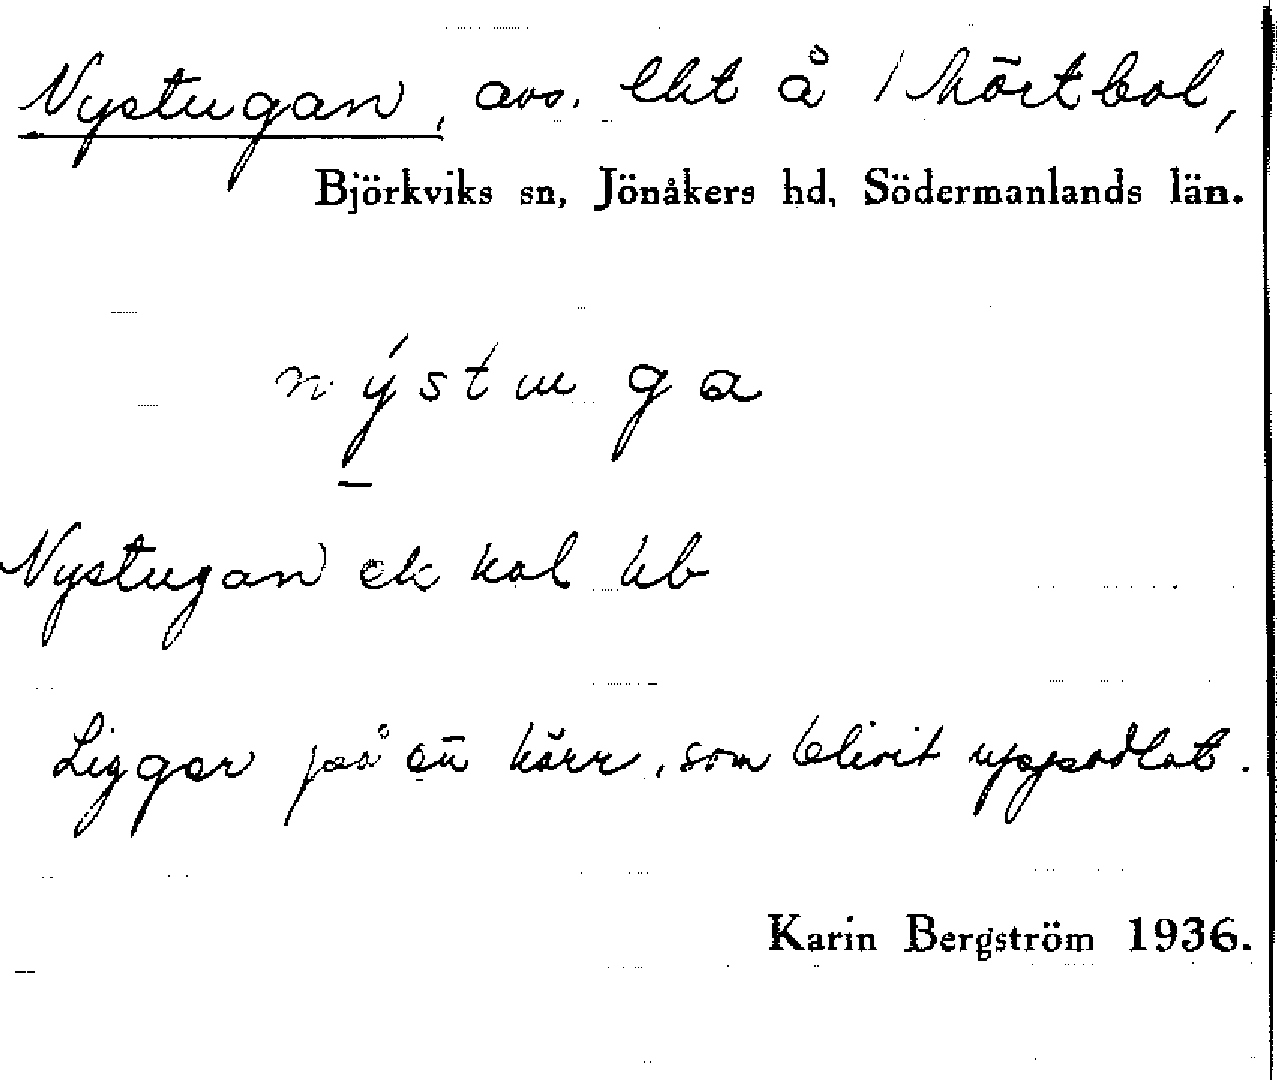 Nystugan, avs. lht å 1 Mörtbol,
Björkviks sn, Jönåkers hd, Södermanlands län.
nýstuga
Nystugan ek kal hb
Ligger på en kärr, som blivit uppodlat.
Karin Bergström 1936.